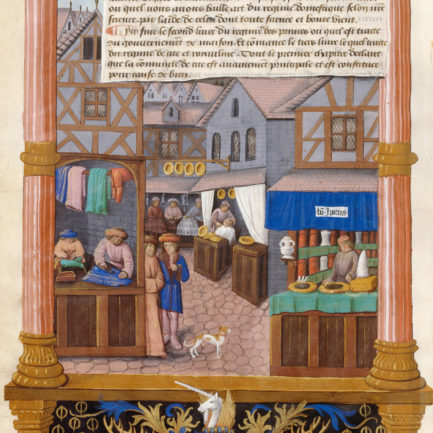 ou quel nous avons baille art du regime domestique selon
science par laide de celui dont toute science et bonte vient.
Cy fine le second livre du regime des princes ou quel est traicte
du gouvernement de maison. Et commance le tiers livre le quel
du regime de cite et royaulme. Dont le premier chapitre declaire
que la communite de cite est aucunement principale et est constituee
pour cause de bien.
bō ypocras